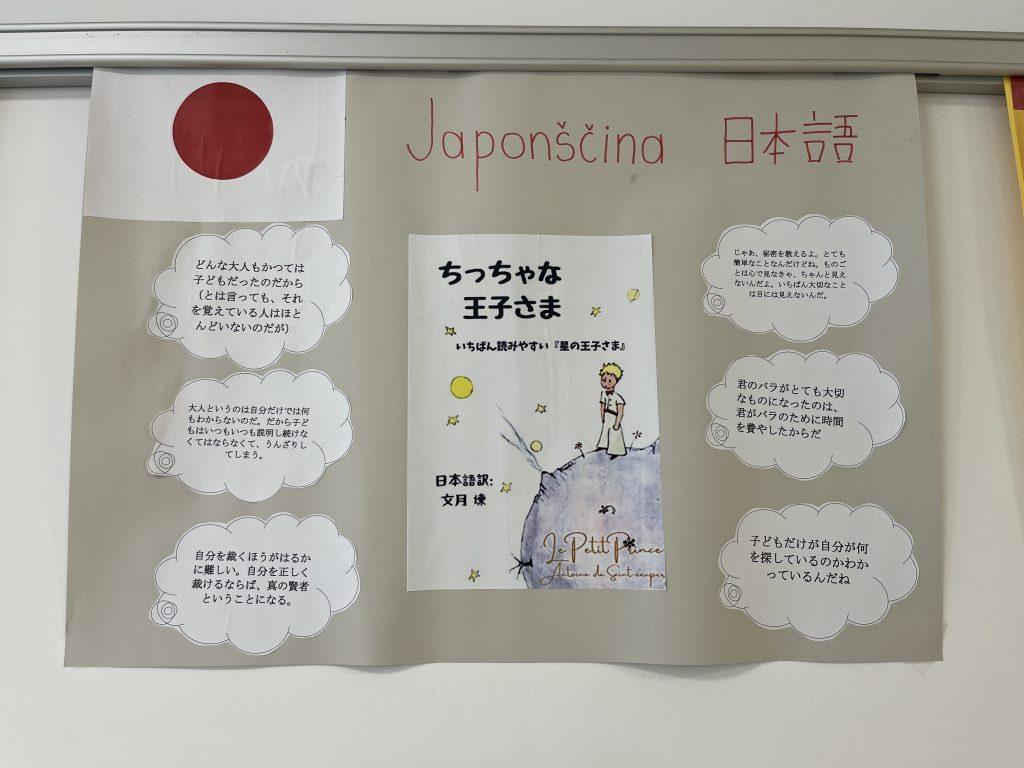 Japonščina 日本語
どんな大人もかつては
子どもだったのだから
（とは言っても、それ
を覚えている人はほと
んどいないのだが）
大人というのは自分だけでは何
もわからないのだ。だから子ど
もはいつもいつも説明し続けな
くてはならなくて、うんざりし
てしまう。
自分を裁くほうがはるか
に難しい。自分を正しく
裁けるならば、真の賢者
ということになる。
ちっちゃな
王子さま
いちばん読みやすい『星の王子さま』
日本語訳:
文月 煉
Le Petit Prince
Antoine de Saint-exuper
じゃあ、秘密を教えるよ。とても
簡単なことなんだけどね。ものご
とは心で見なきゃ、ちゃんと見え
ないんだよ。いちばん大切なこと
は目には見えないんだ。
君のバラがとても大切
なものになったのは、
君がバラのために時間
を費やしたからだ
子どもだけが自分が何
を探しているのかわか
っているんだね